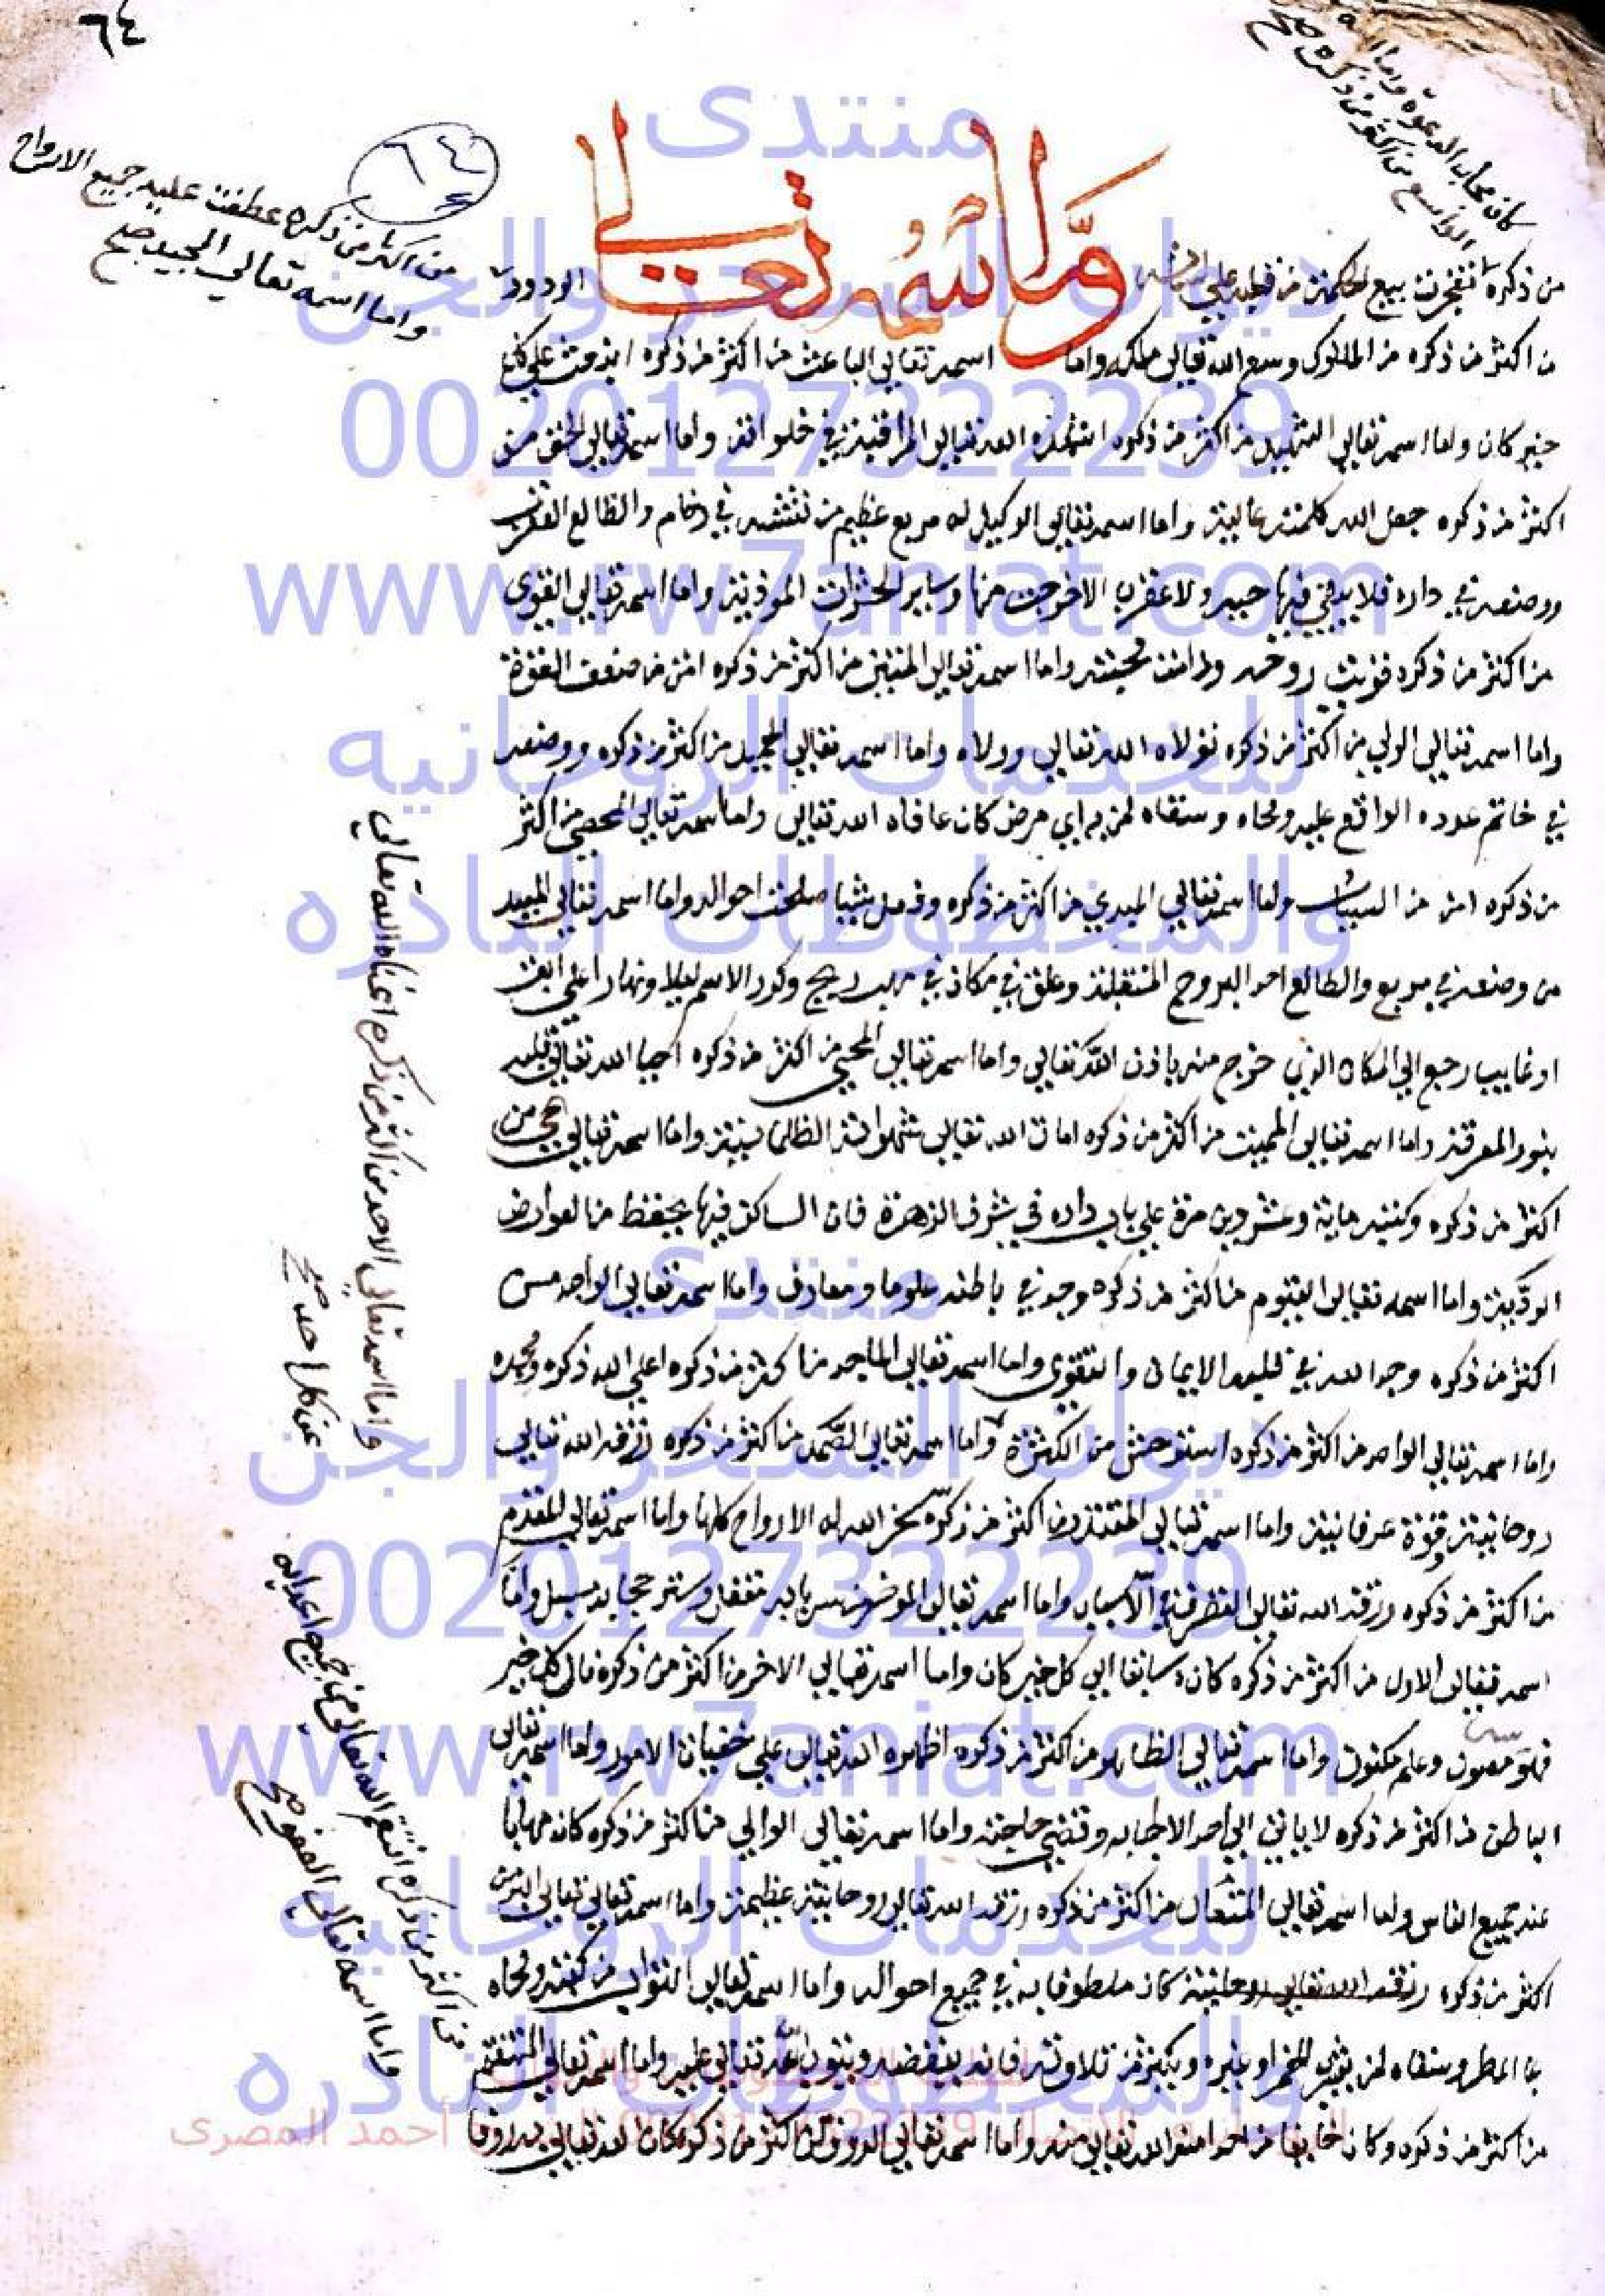 ٦٤
كان مجاب الدعوة واما ا
الواسع من اكثر من ذكره صح
٦٤
من اكثر من ذكره عطفت عليه جميع الارواح
واما اسمه تعالى المجيد صح
وَاسْمُه تعالى
من ذكره انفجرت ينبع الحكمة من قلبه على لسانه الودود
من اكثر من ذكره من الملوك وسع الله تعالى ملكه واما اسمه تعالى الباعث من اكثر من ذكره على كل
خير كان واما اسمه تعالى الشهيد من اكثر من ذكره اشهده الله تعالى المراقبة في خلواته واما اسمه تعالى الحق من
اكثر من ذكره جعل الله كلمته عالية واما اسمه تعالى الوكيل له مربع عظيم من نقشه في رخام والطالع العقرب
ووضعه في داره فلا يبقى فيها حية ولا عقرب الا خرجت منها وساير الحشرات الموذية واما اسمه تعالى القوى
من اكثر من ذكره قويت روحه ودامت واما اسمه تعالى المتين من اكثر من ذكره امن من ضعف القوة
واما اسمه تعالى الولي من اكثر من ذكره تولاه الله تعالى وولاه واما اسمه تعالى الحميد من اكثر من ذكره ووضعه
في خاتم عدده الواقع عليه ومحاه وسقاه لمن به اي مرض كان عافاه الله تعالى واما اسمه تعالى المحصي من اكثر
من ذكره امن من واما اسمه تعالى المبدي من اكثر من ذكره صلحت احواله واما اسمه تعالى المعيد
من وضعه في مربع والطالع احد البروج المنقلبة وعلقه في مكان في مهب ريح وكرر الاسم ليلا ونهارا على ابق
او غايب رجع الي المكان الذي خرج منه باذن الله تعالى واما اسمه تعالى المحيي من اكثر من ذكره احيا الله تعالى قلبه
بنور المعرفة واما اسمه تعالى المميت من اكثر من ذكره امات الله تعالى شهواته الظلمانية واما اسمه تعالى حي من
اكثر من ذكره وكتبه ماية وعشرون مرة على باب داره في شرف الزهرة فان الساكن فيها يحفظ من العوارض
الرديه واما اسمه تعالى القيوم من اكثر من ذكره وجد في باطنه علوما ومعارف واما اسمه تعالى الواجد من
اكثر من ذكره وجد الله في قلبه الايمان والتقوى واما اسمه تعالى الماجد من اكثر من ذكره اعلى الله ذكره ومجده
واما اسمه تعالى الواحد من اكثر من ذكره استوحش من الكثرة واما اسمه تعالى الصمد من اكثر من ذكره رزقه الله تعالى
روحانية وقوة عرفانية واما اسمه تعالى المقتدر من اكثر من ذكره سخر الله له الارواح كلها واما اسمه تعالى المقدم
من اكثر من ذكره ورزقه الله تعالى واما اسمه تعالى الموخر وستر واما
اسمه تعالى الاول من اكثر من ذكره كان سابقا الى كل خير كان واما اسمه تعالى الاخر من اكثر من ذكره نال كل خير
وعلم مكنون واما اسمه تعالى الظاهر من اكثر من ذكره اظهره الله تعالى على خفيات الامور واما اسمه تعالى
الباطن من اكثر من ذكره لا ياتي الى احد الا اجابه وقضي حاجته واما اسمه تعالى الوالي من اكثر من ذكره كان مهابا
عند جميع الناس واما اسمه تعالى المتعال من اكثر من ذكره رزقه الله تعالى روحانية عظيمة واما اسمه تعالى تعالى البر من
اكثر من ذكره رزقه الله تعالى روحانية كان ملطوفا به في جميع احواله واما اسمه تعالى التواب من كتبه ومحاه
بما المطر وسقاه لمن يشرب الخمر او غيره ويكثر من تلاوته فانه يبغضه ويتوب الله تعالى عليه واما اسمه تعالى المنتقم
من اكثر من ذكره وكان خايفا من احد امنه الله تعالى منه واما اسمه تعالى الرووف من اكثر من ذكره كان الله تعالى به روفا
واما اسمه تعالى الاحد من اكثر من ذكره اغناه الله تعالى
عن كل احد صح
من اكثر من ذكره انتقم الله تعالى من جميع اعدايه
واما اسمه تعالى العفو صح
منتدى
ديوان السحر والجن
0020127322239
www.rw7aniat.com
للخدمات الروحانيه
والمخطوطات النادره
منتدى
ديوان السحر والجن
0020127322239
www.rw7aniat.com
للخدمات الروحانيه
والمخطوطات النادره
أحمد المصرى